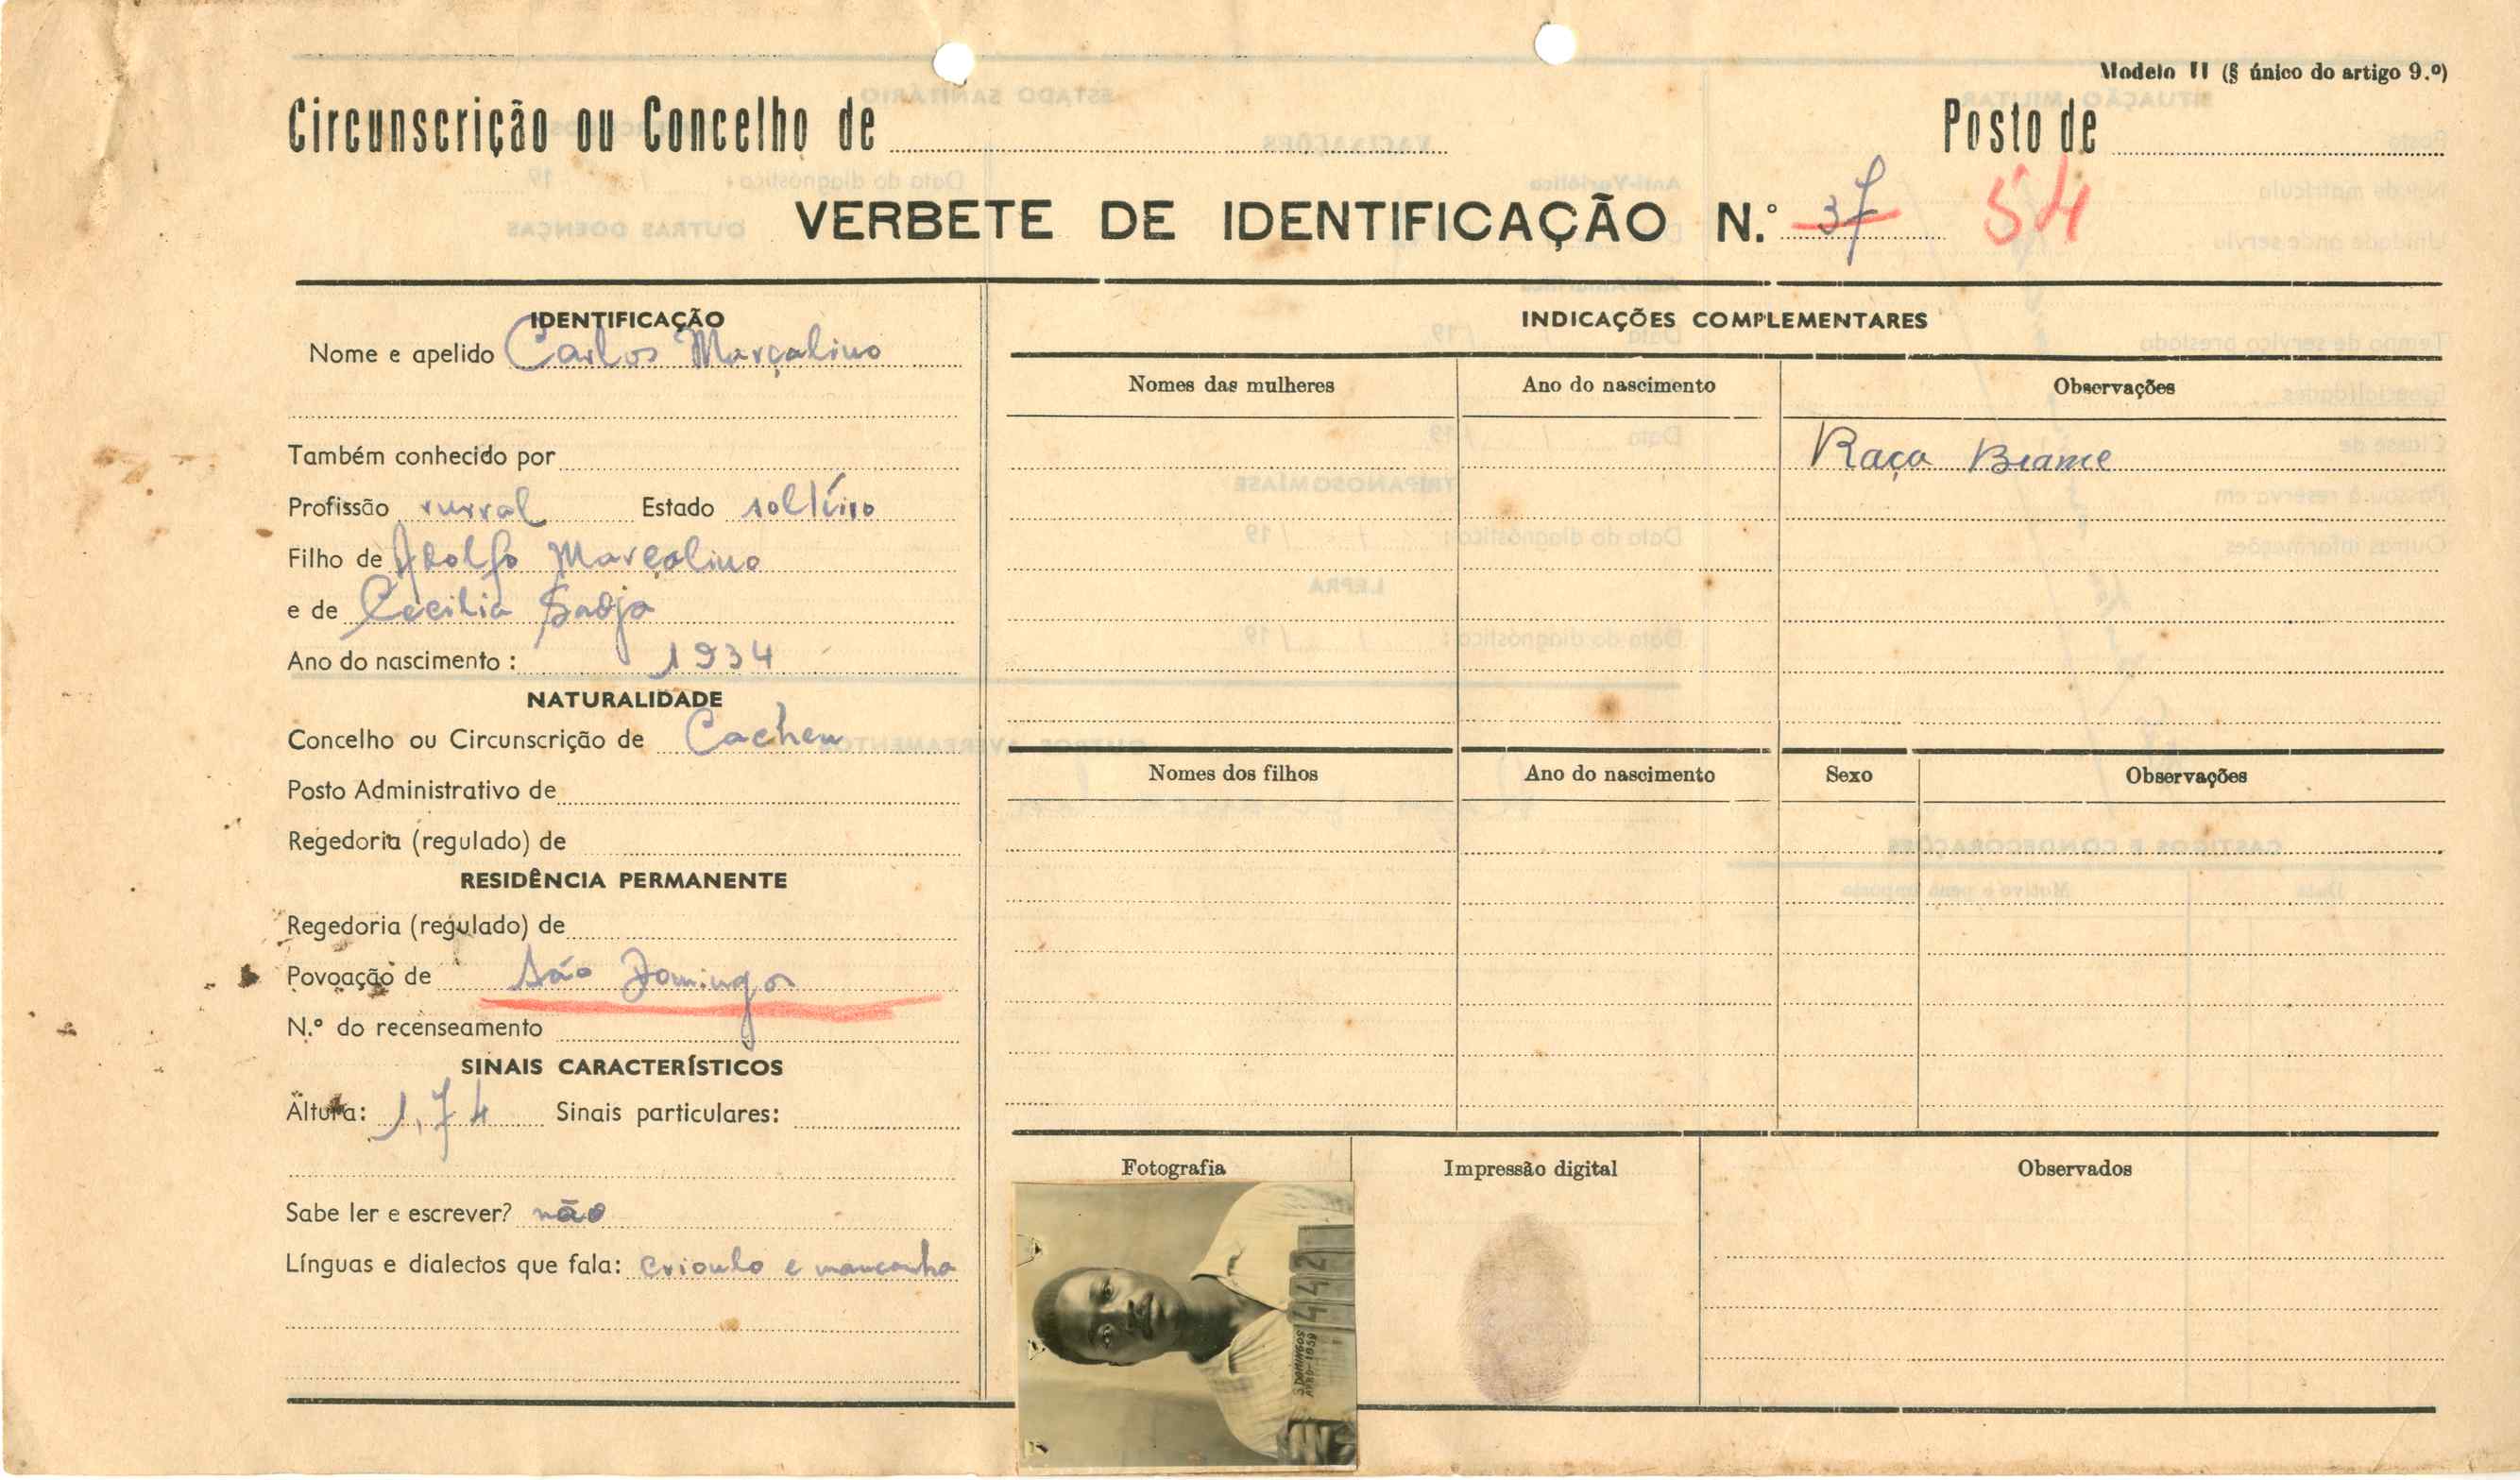 Modelo II (§ único do artigo 9.º)
Circunscrição ou Concelho de
Posto de
VERBETE DE IDENTIFICAÇÃO N.º 37 54
IDENTIFICAÇÃO
Nome e apelido Carlos Marçalino
Também conhecido por
Profissão rurral Estado soltéiro
Filho de Adolfo Marçalino
e de Cecilia Sadjo
Ano do nascimento: 1934
NATURALIDADE
Concelho ou Circunscrição de Cacheu
Posto Administrativo de
Regedoria (regulado) de
RESIDÊNCIA PERMANENTE
Regedoria (regulado) de
Povoação de São Domingos
N.º do recenseamento
SINAIS CARACTERÍSTICOS
Altura: 1,74 Sinais particulares:
Sabe ler e escrever? não
Línguas e dialectos que fala: crioulo e mancanha
INDICAÇÕES COMPLEMENTARES
Nomes das mulheres Ano do nascimento Observações
Raça Brame
Nomes dos filhos Ano do nascimento Sexo Observações
Fotografia Impressão digital Observados
442
S.DOMINGOS
1959